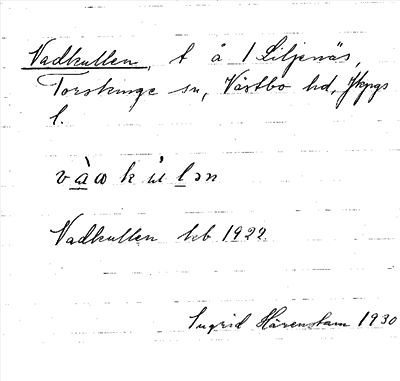 Vadkullen, t å 1 Liljenäs,
Torskinge sn, Västbo hd, Jkpgs
l.
Vadkullen hb 1922
Ingrid Härenstam 1930